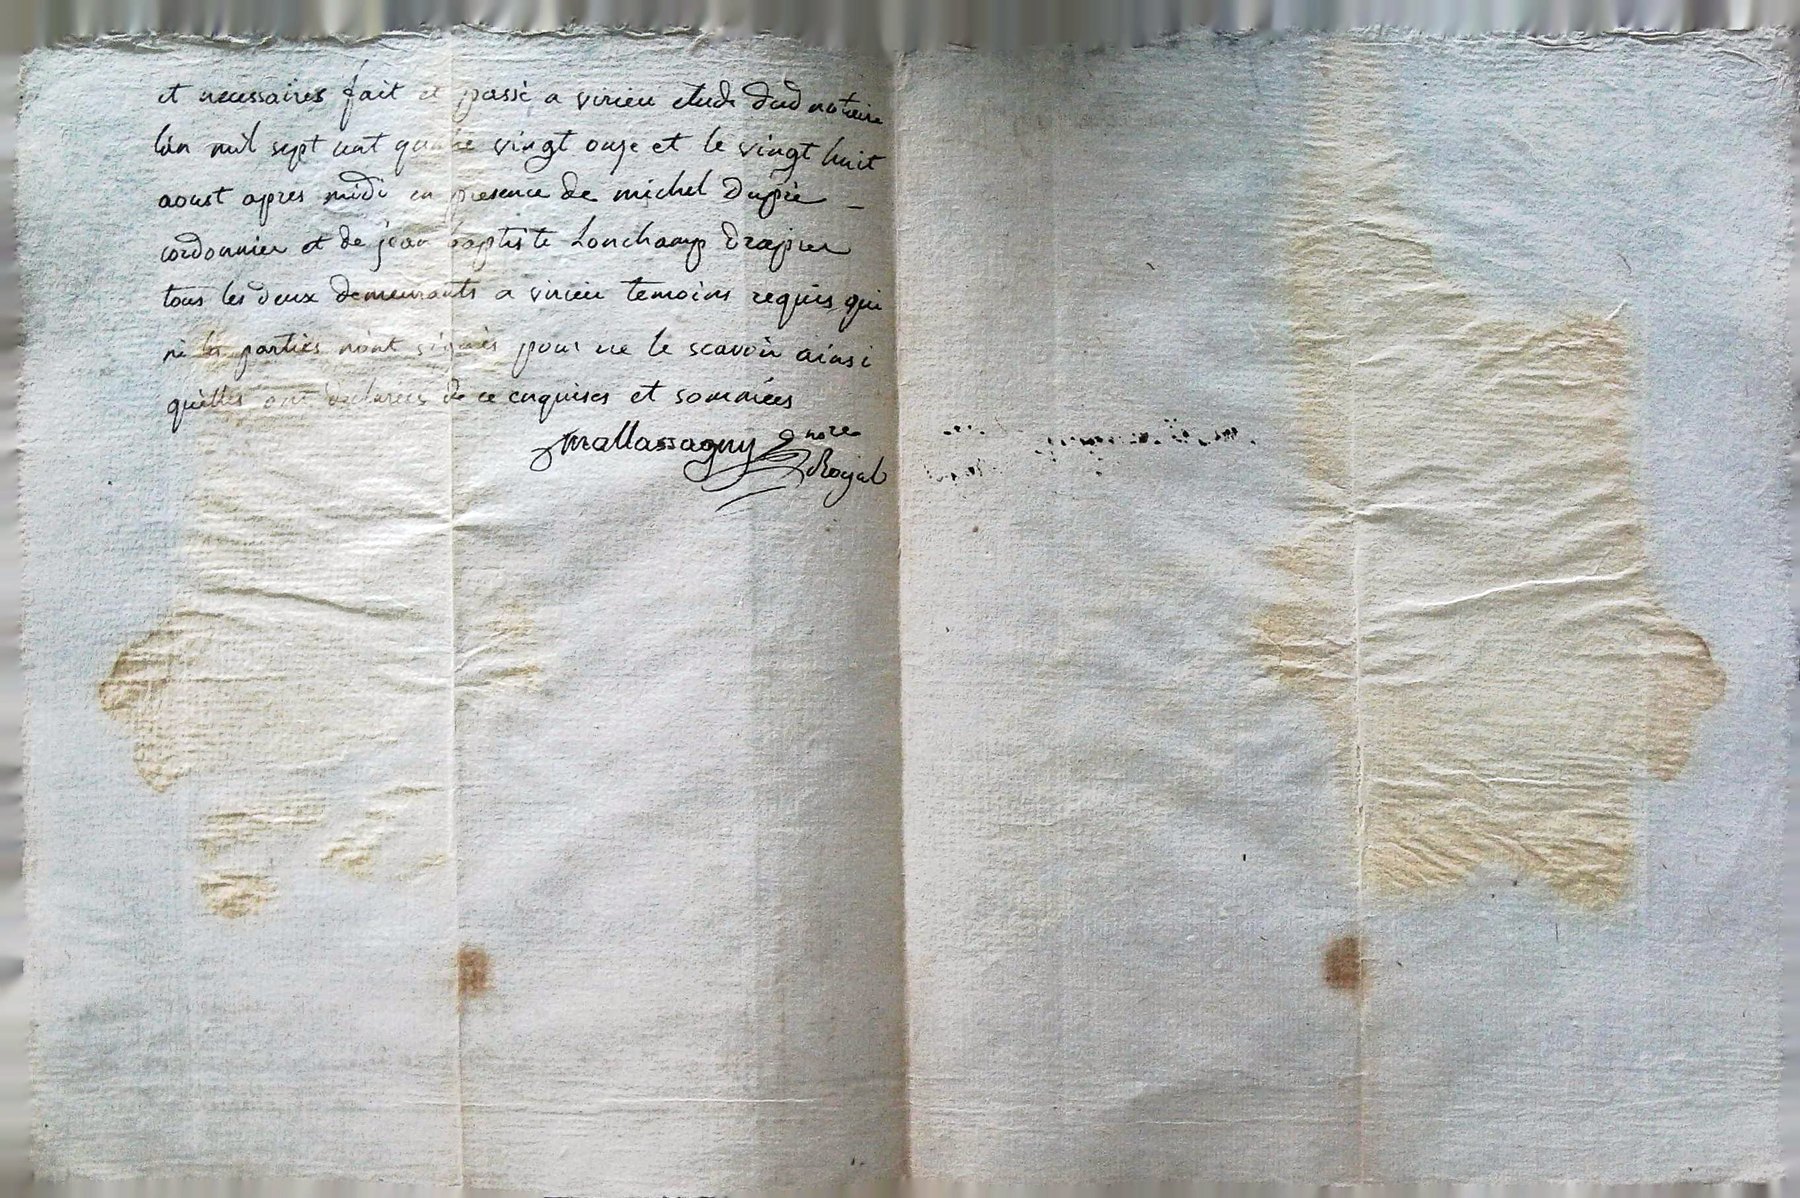 et necessaires fait et passé a virieu etude dud notaire
l'an mil sept cent quatre vingt onze et le vingt huit
aoust apres midi en presence de michel Dupie
cordonnier et de jean baptiste Lonchamp drapier
tous les deux demeurants a virieu temoins requis qui
ni les parties n'ont signés pour ne le scavoir ainsi
qu'elles ont declarées de ce enquises et sommées
Mallassagny nore
Royal